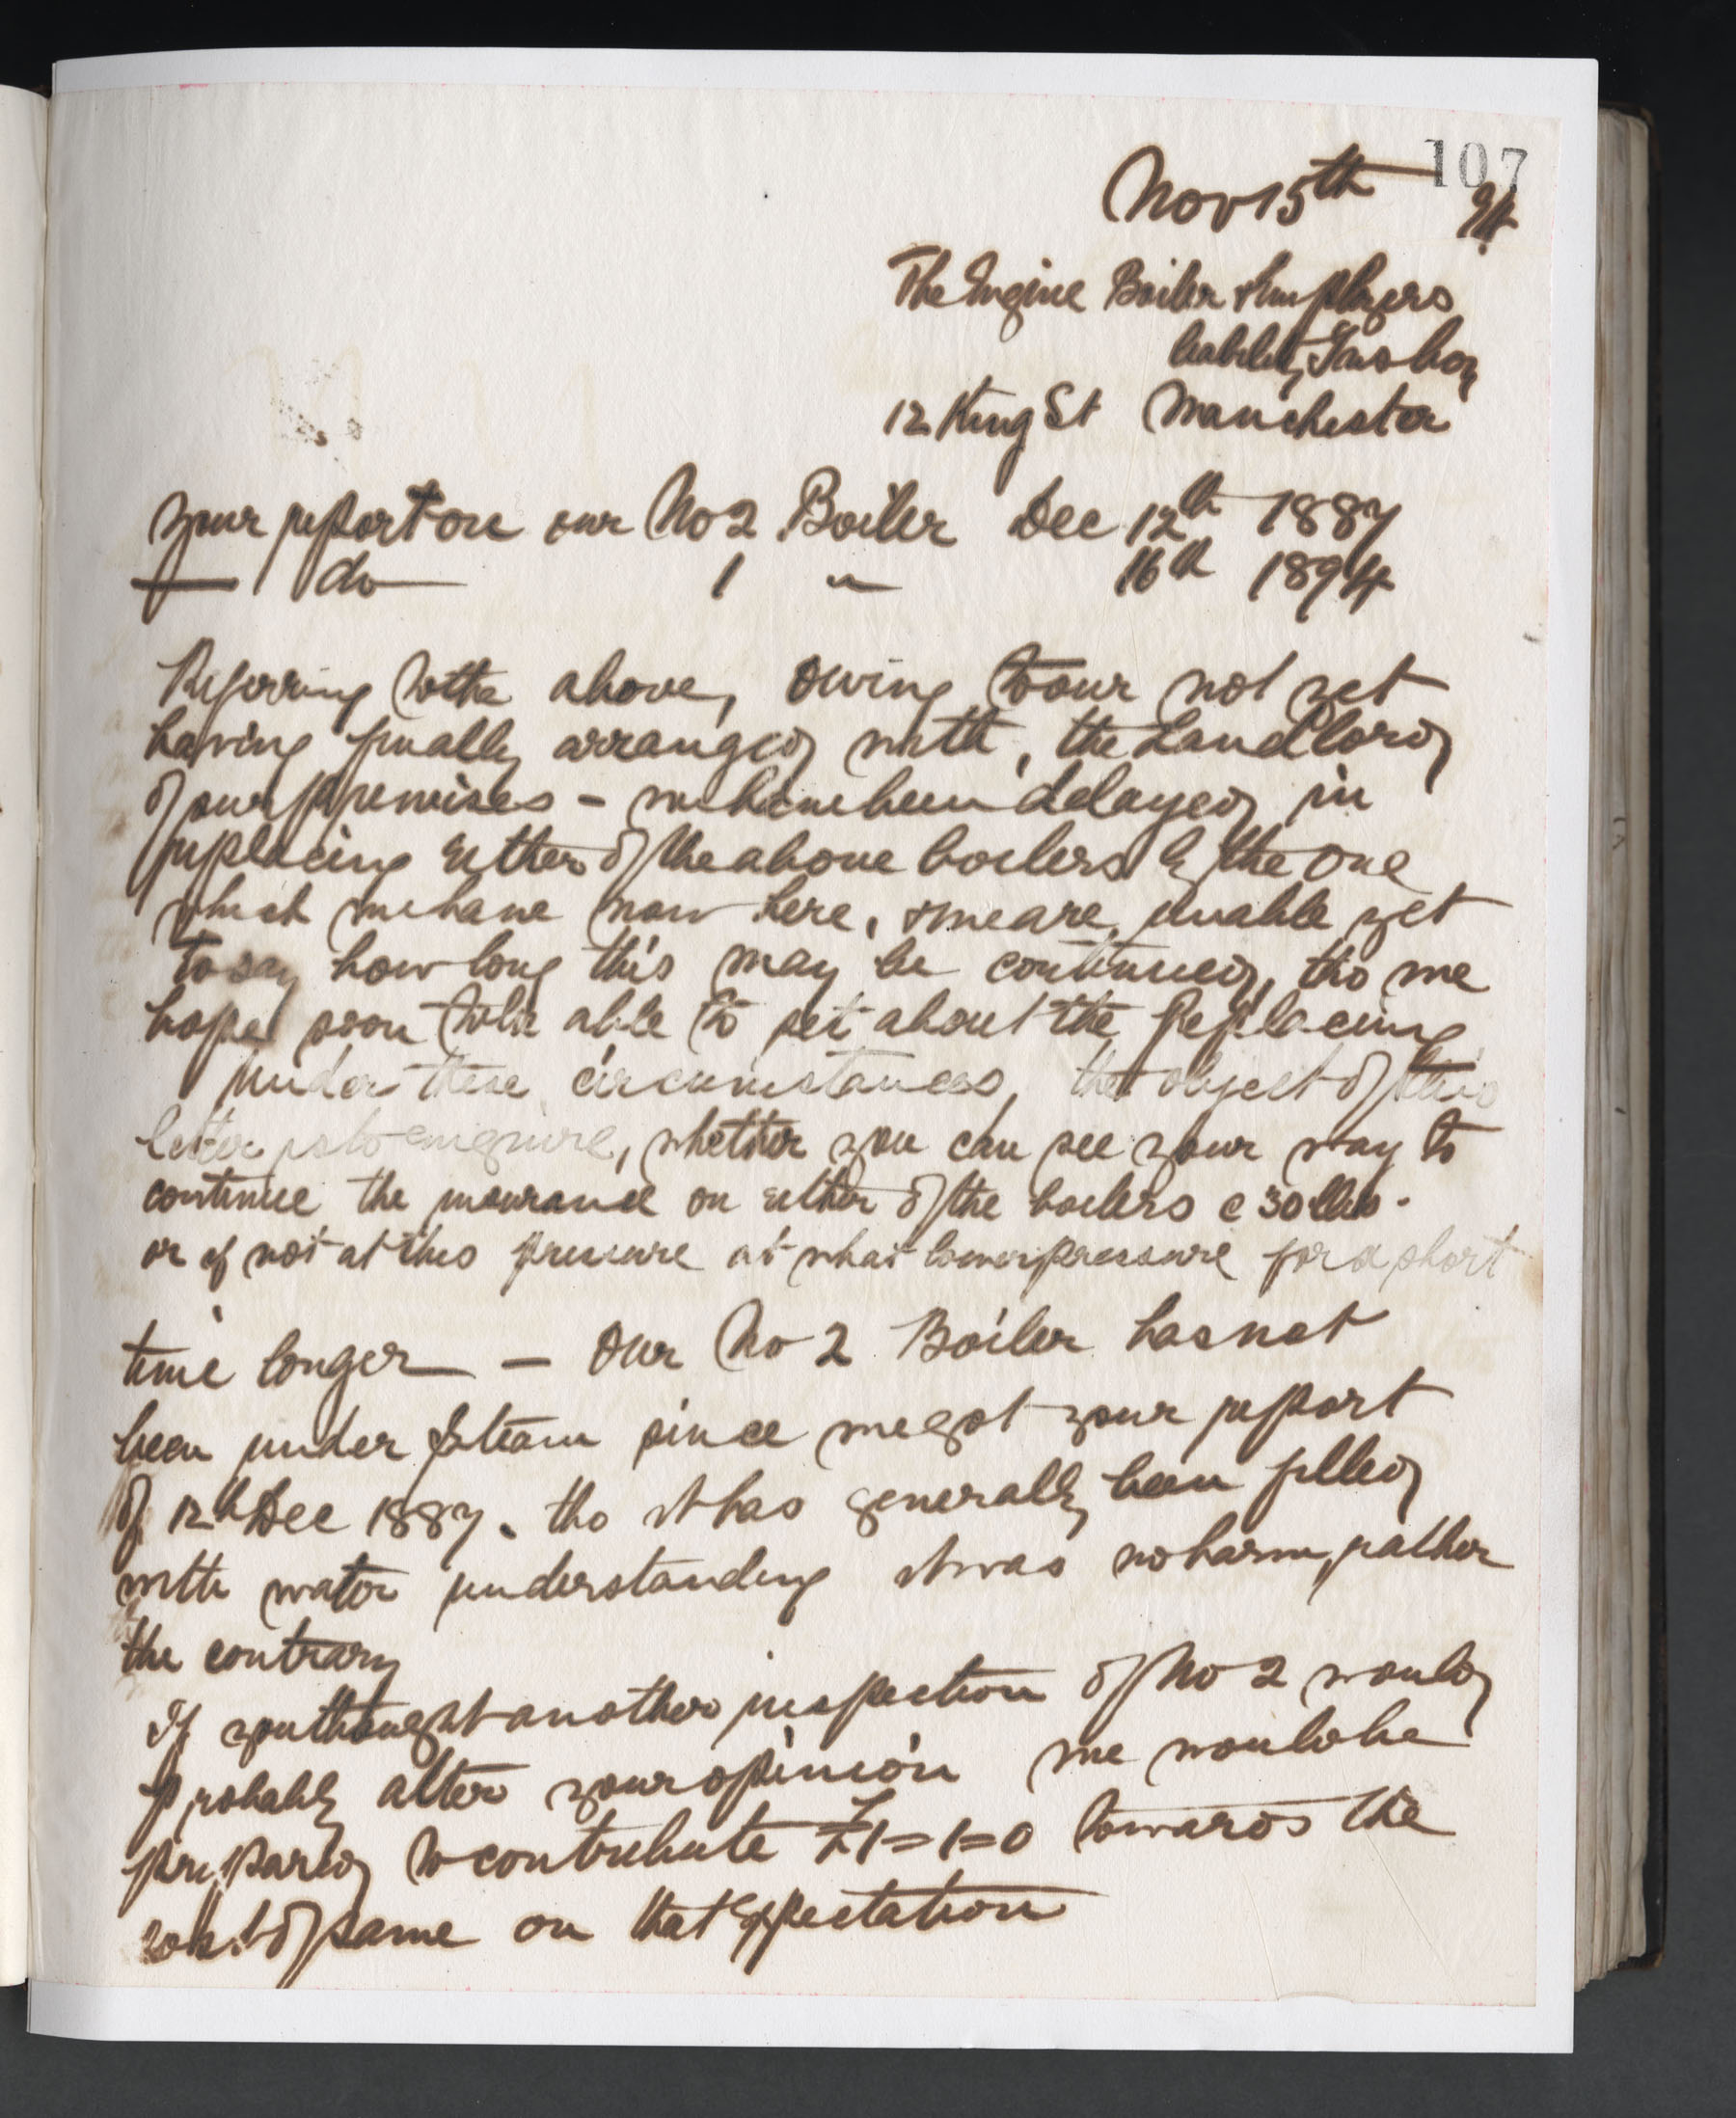 107
Nov 15th 94
The Engine Boiler & Employers
liability Insce Coy
12 King St Manchester
your report on our No 2 Boiler Dec 12th 1887
— do — 1 " 16th 1894
Referring to the above, owing to our not yet
having finally arranged with, the Landlord
of our premises - we have been delayed in
replacing either of the above boilers by the one
which we have now here, & we are unable yet
to say how long this may be continued, tho we
hope soon to be able to set about the Replacing
under these circumstances, the object of this
letter is to enquire, whether you can see your way to
continue the insurance on either of the boilers @ 30 lbs.
or if not at this pressure at what lower pressure for a short
time longer — Our No 2 Boiler has not
been under steam since we got your report
of 12th Dec 1887. tho it has generally been filled
with water understanding it was no harm, rather
the contrary
If you thought another inspection of No 2 would
probably alter your opinion we would be
prepared to contribute £1=1=0 towards the
cost of same on that expectation